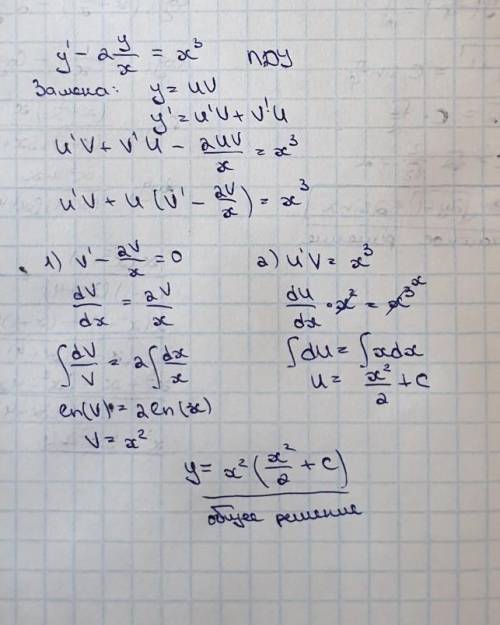 y' - 2 y/x = x³ ЛДУ
Замена: y = uv
y' = u'v + v'u
u'v + v'u - 2uv/x = x³
u'v + u (v' - 2v/x) = x³
1) v' - 2v/x = 0
dv/dx = 2v/x
∫ dv/v = 2 ∫ dx/x
ln(v) = 2ln(x)
v = x²
2) u'v = x³
du/dx · x² = x³ x
∫ du = ∫ x dx
u = x²/2 + c
y = x² (x²/2 + c)
общее решение